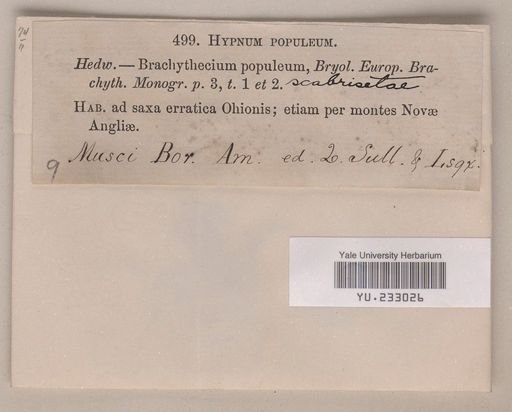 499. HYPNUM POPULEUM.
Hedw. — Brachythecium populeum, Bryol. Europ. Bra-
chyth. Monogr. p. 3, t. 1 et 2. scabrisetae
HAB. ad saxa erratica Ohionis; etiam per montes Novæ
Angliæ.
9 Musci Bor. Am. ed. 2. Sull. & Lsqx.
Yale University Herbarium
YU.233026